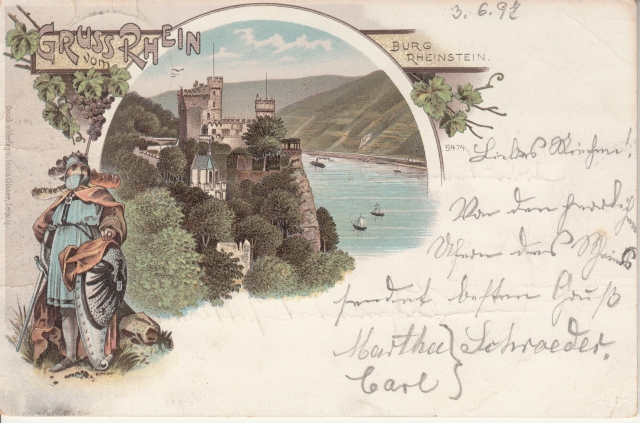 GRUSS VOM RHEIN
BURG
RHEINSTEIN.
3. 6. 97
5474.
Liebes Miechen!
Von den herrlichen
Ufern des Rheins
sendet besten Gruß
Martha } Schroeder.
Carl